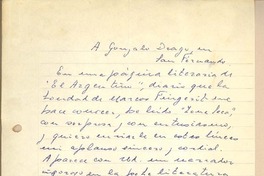 A Gonzalo Drago, en
San Fernando.
En una página literaria de
"El Argentino", diario que la
bondad de Marcos Fingerit me
hace conocer, he leído
con sorpresa, con entusiasmo,
y quiero enviarle en estas líneas
mi aplauso sincero, cordial.
Aparece con Ud. un narrador
vigoroso en la literatura